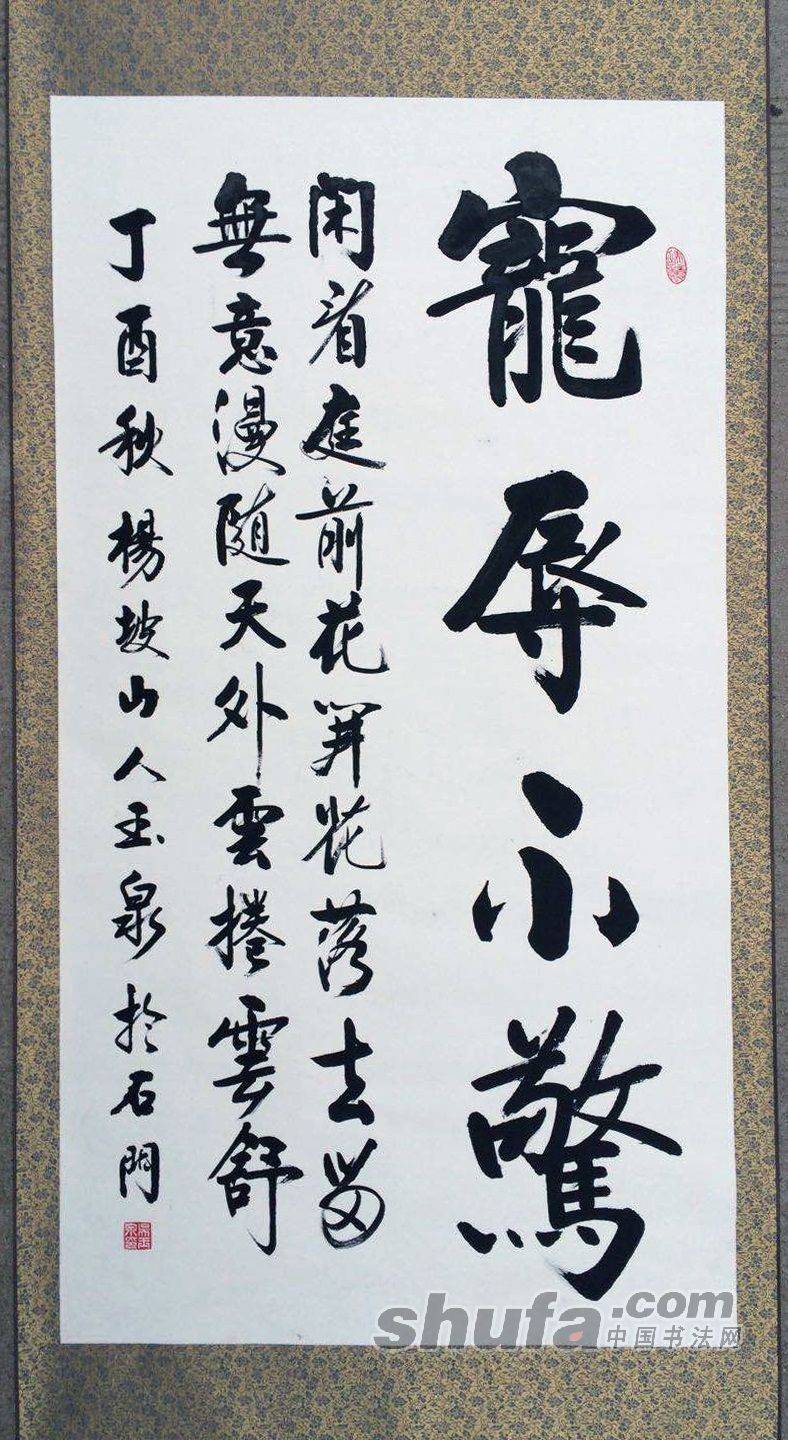 寵辱不驚
閑看庭前花開花落去留
無意漫随天外雲捲雲舒
丁酉秋楊坡山人玉泉於石門
shufa.com
中国书法网